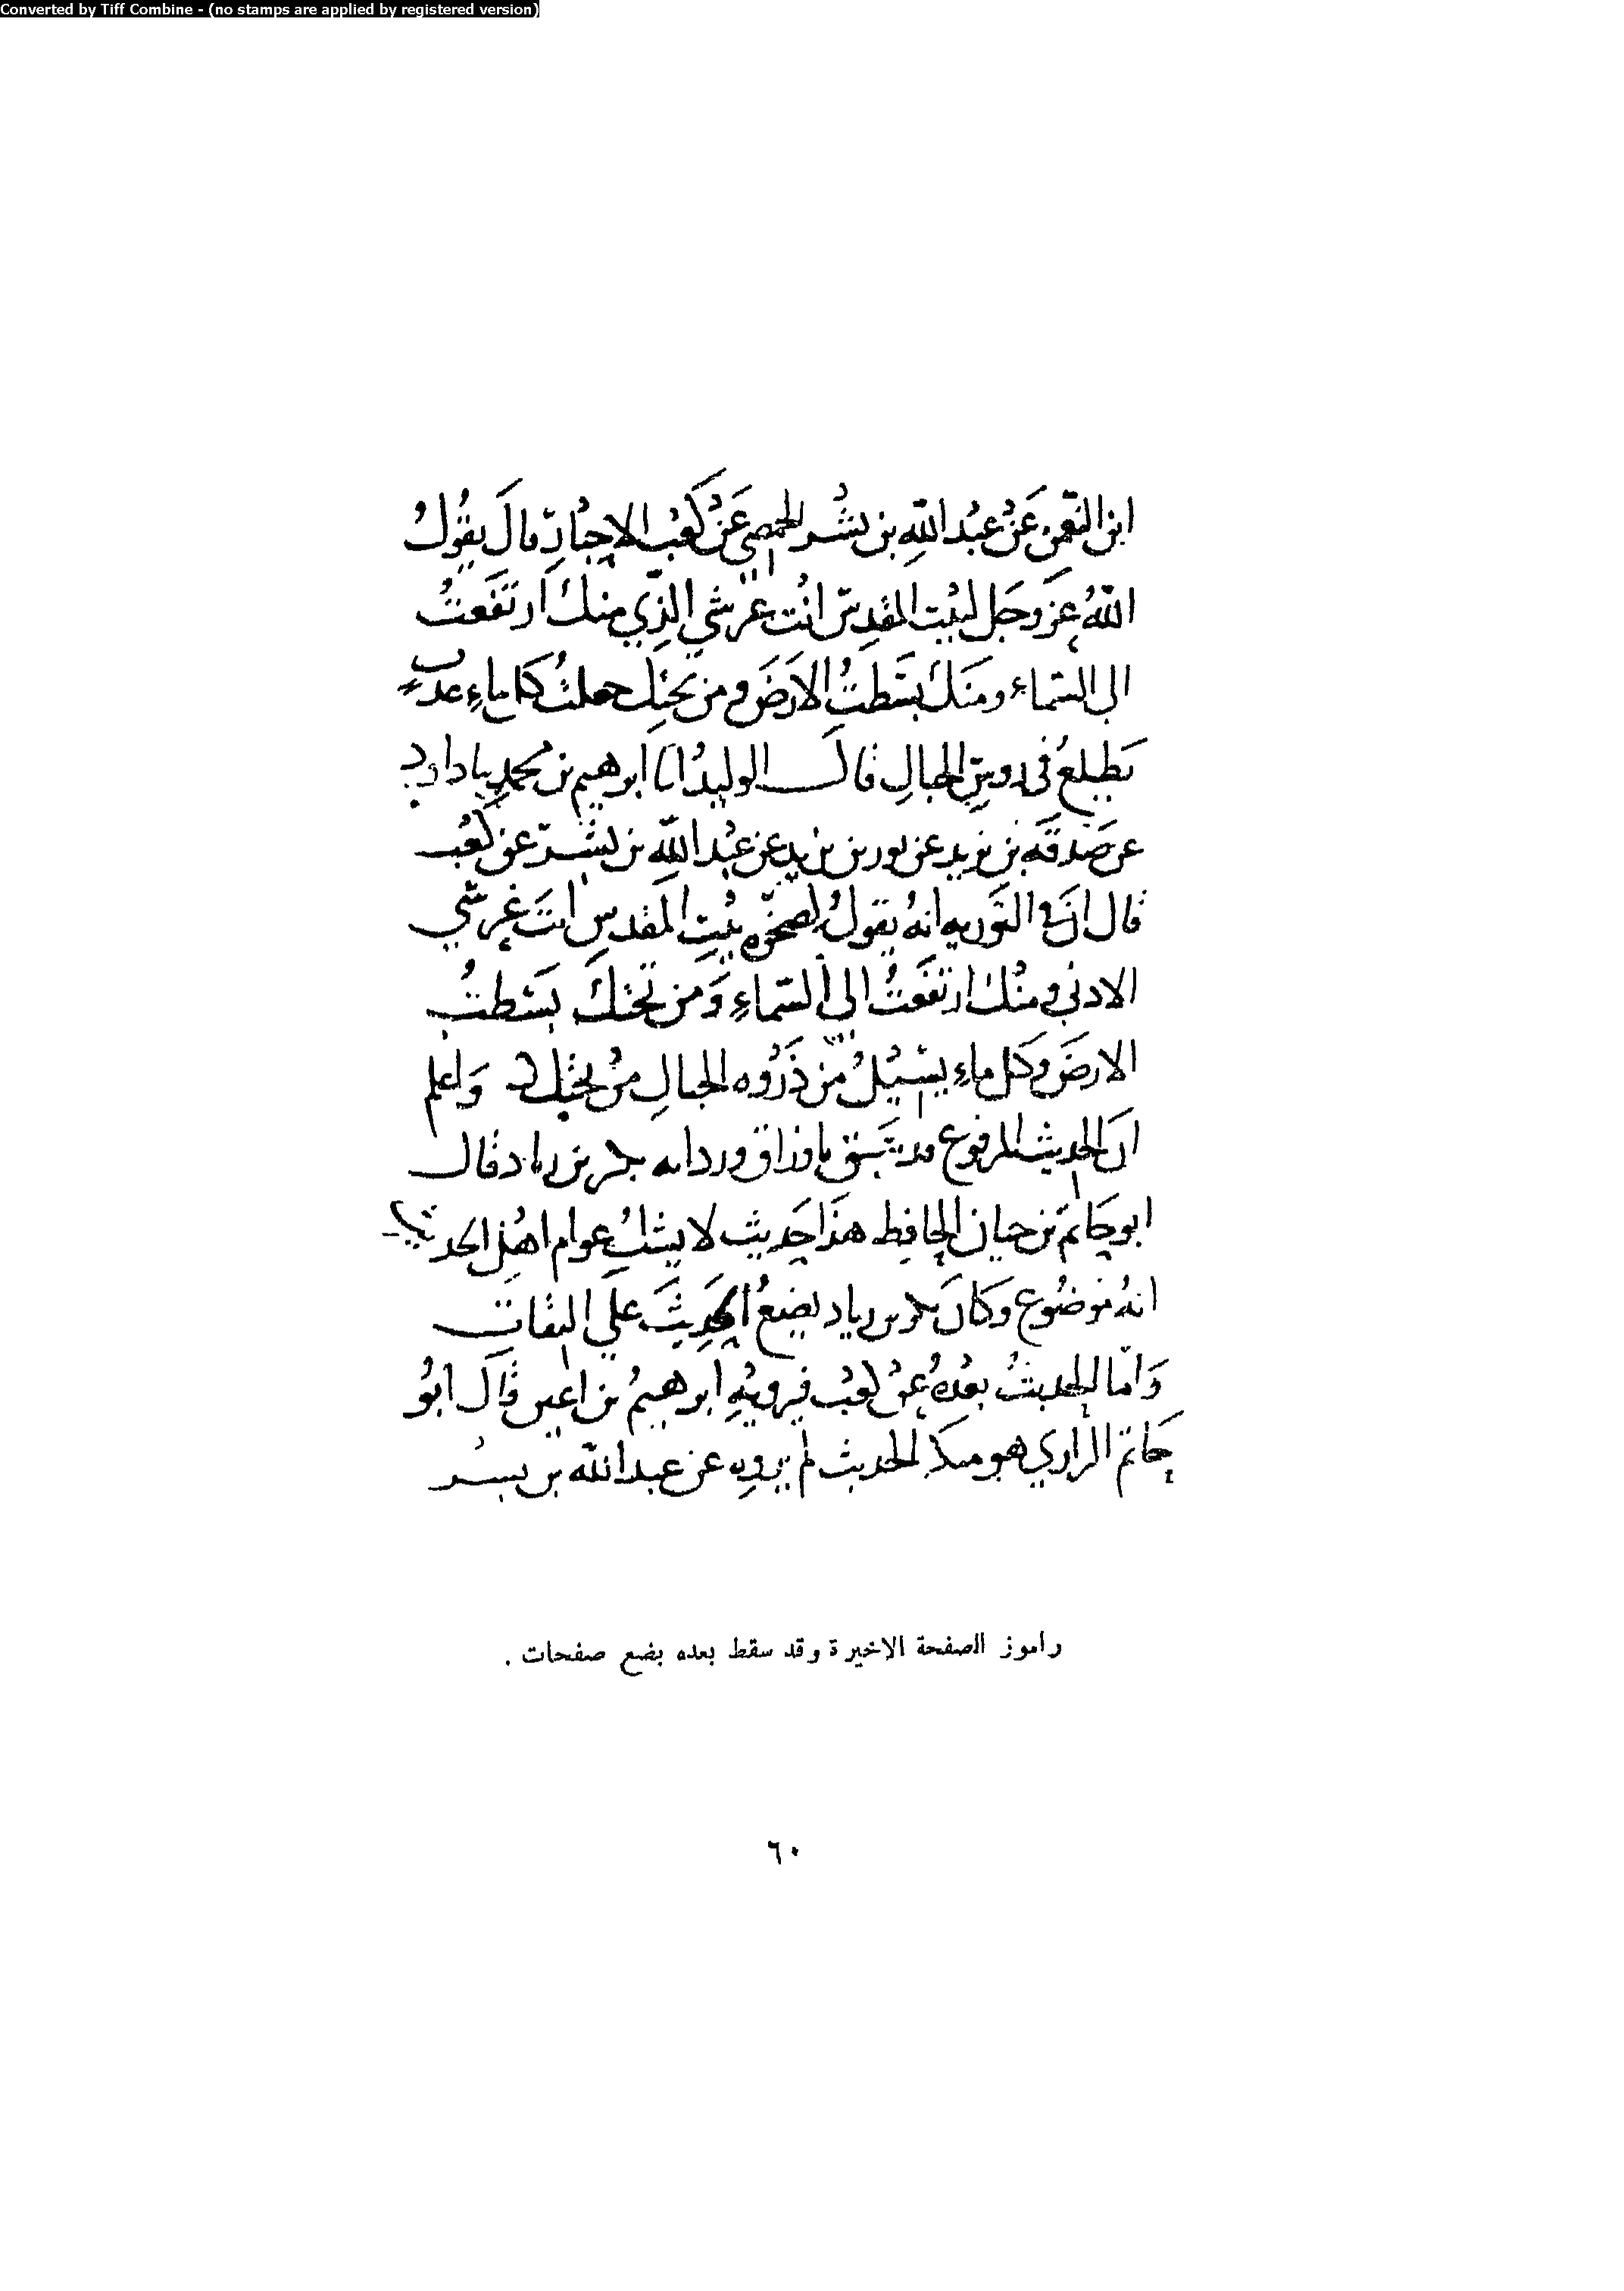 Converted by Tiff Combine - (no stamps are applied by registered version)
ابن النعمن عَنْ عبْد اللّهِ بن بشْر الحمصي عَنْ كَعْب الاحبْارِ قالَ يقُولُ
اللّهُ عزوجَل لبيْت المقدس انْت عرشي الذِّي منك ارتَفَعتُ
الى السّماء ومنَكَ بسَطتُ الارَضَ ومن تحتِك جعلتُ كل ماءٍ عذبٍ
يَطلعُ في روسِ الجبالِ قال الوليدُ ابرهيم بن محمدٍ داود
عن صَدقَة بن يزيد عن ثور بن يزيد عن عبْد اللّهِ بن بشْر عن كعْب
قال انَ في التَوريه انهُ يقولُ لصخرهِ بيْتِ المقدسِ انتَ عَرشي
الادنى ومنْك ارتفَعتُ الى السّماءِ وَمن تَحتك بَسَطتُ
الارضَ وكل ماءٍ يسيْلُ من ذَرْوه الجبالِ منْ تحتِك وَاعلم
انَ الحديث المرفوع قد سَبق
ابو حَاتم بن حبان الحافِظ هذَا حَديث لا يشكُ عوام اهْل الحديث
انهُ موضُوع وكَانَ بكر بن زياد يضعُ الحَدِيثَ علَى الثقات
وَامّا الحديثُ بعْدهُ عنْ كعْب فيرويْهِ ابرهيمُ بن اعين قَالَ ابوُ
حَاتم الرازي هو منكر الحديث لم يروهِ عن عبد اللّه بن بسْر
راموز الصفحة الاخيرة وقد سقط بعده بضع صفحات .
٦٠